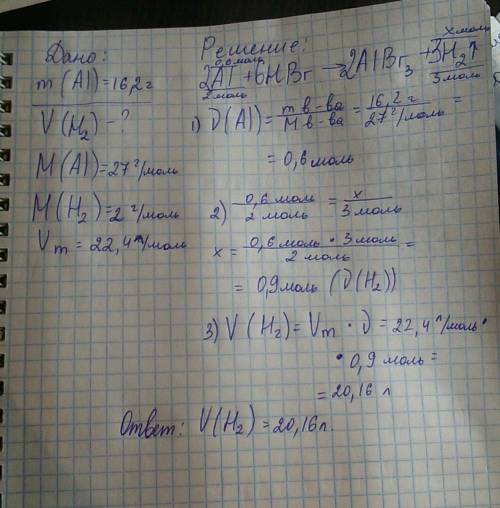 Дано:
m(Al)=16,2г
V(H₂) - ?
M(Al)=27 г/моль
M(H₂)=2 г/моль
Vm = 22,4 л/моль
Решение:
0,6 моль x моль
2Al + 6HBr → 2AlBr₃ + 3H₂↑
2 моль 3 моль
1) D(Al) = m в-ва / M в-ва = 16,2 г / 27 г/моль =
= 0,6 моль
2) 0,6 моль / 2 моль = x / 3 моль
x = 0,6 моль · 3 моль / 2 моль =
= 0,9 моль (D(H₂))
3) V(H₂) = Vm · D = 22,4 л/моль ·
· 0,9 моль =
= 20,16 л
Ответ: V(H₂) = 20,16 л.